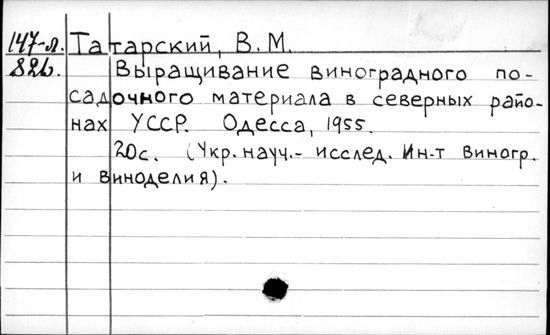 147-л. Татарский, В. М.
826. Выращивание виноградного по-
садочного материала в северных райо-
нах УССР. Одесса, 1955.
20с. (Укр. науч.- исслед. Ин-т виногр.
и виноделия).